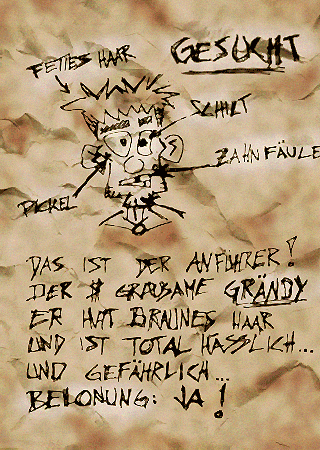 GESUCHT
FETTES HAAR
SCHILT
ZAHNFÄULE
PICKEL
DAS IST DER ANFÜHRER!
DER $ GRAUSAME GRÄNDY
ER HAT BRAUNES HAAR
UND IST TOTAL HÄSSLICH...
UND GEFÄHRLICH...
BELONUNG: JA!